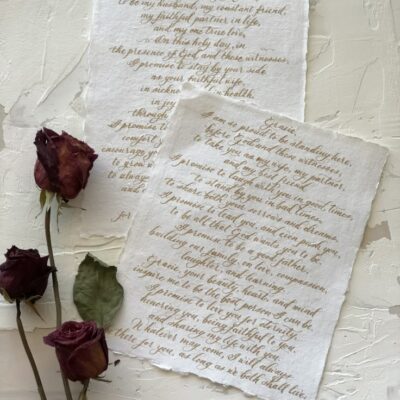 to be my husband, my constant friend,
my faithful partner in life,
and my one true love.
On this holy day, in
the presence of God and these witnesses,
I promise to stay by your side
as your faithful wife,
in sickness health,
in joy
through
I promise to
comfort you
encourage you
to grow
to always
and
for
Gracie,
I am so proud to be standing here,
before God and these witnesses,
to take you as my wife, my partner,
and my best friend.
I promise to laugh with you in good times,
to stand by you in bad times,
to share both your sorrows and dreams.
I promise to lead you, and even push you,
to be all that God wants you to be.
I promise to be a good father,
building our family on love, compassion,
laughter, and learning.
Gracie, your beauty, heart, and mind
inspire me to be the best person I can be.
I promise to love you for eternity,
honoring you, being faithful to you,
and sharing my life with you.
Whatever may come, I will always
be there for you, as long as we both shall live.